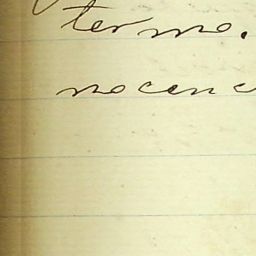 termo.
nocen